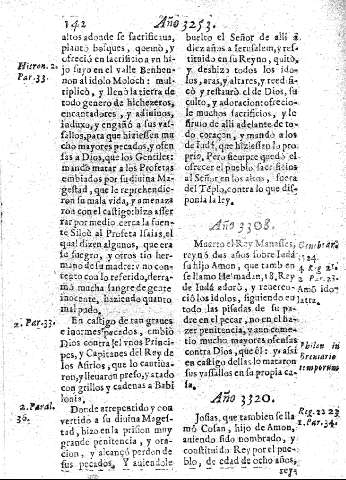 142
Año 3253.
altos adonde se sacrificaua,
plantò bosques, quemò, y
ofreciò en sacrificio a vn hi-
jo suyo en el valle Benhen-
non al idolo Moloch: mul-
tiplicò, y llenò la tierra de
todo genero de hichezeros,
encantadores, y adiuinos,
induxo, y engañò a sus vas-
sallos, para que hiziessen mu
cho mayores pecados, y ofen
sas a Dios, que los Gentiles:
mandò matar a los Profetas
embiados por su diuina Ma-
gestad, que le reprehendie-
ron su mala vida, y amenaza
ron con el castigo: hizo asser
rar por medio cerca la fuen-
te Siloè al Profeta Isaias, el
qual dizen algunos, que era
su suegro, y otros tio her-
mano de su madre: y no con-
tento con lo referido, derra-
mò mucha sangre de gente
inocente, haziendo quanto
mal pudo.
En castigo de tan graues
e inormes pecados, embiò
Dios contra sel vnos Princi-
pes, y Capitanes del Rey de
los Asirios, que lo cautiua-
ron, y lleuaron preso, y atado
con grillos y cadenas a Babi
lonia.
Donde arrepentido y con
uertido a su diuina Mages-
tad, hizo en la prision muy
grande penitencia, y ora-
cion, y alcançò perdon de
sus pecados. Y auiendole
Hieron. 2.
Par. 33.
2. Par. 33.
2. Paral.
36.
buelto el Señor de alli a
diez años a Ierusalem, y res-
tituido en su Reyno, quitò,
y deshizo todos los ido-
los, aras, y altares, y reedi-
cò y restaurò el de Dios, su
culto, y adoracion: ofrecio-
le muchos sacrificios, y le
siruio de alli adelante de to-
do coraçon, y mandò a los
de Iudà, que hiziessen lo pro
prio. Pero siempre quedò el
ofrecer el pueblo sacrificios
al Señor en los altos, fuera
del Tẽplo, contra lo que dis-
ponia la ley.
Año 3308.
Muerto el Rey Manasses,
reynò dos años sobre Iudà
su hijo Amon, que tambien
se llamò
de Iudà adorò, y reueren-
ciò los idolos, siguiendo en
todo las pisadas de su pa-
dre en el pecar, no en el ha-
zer penitencia, y aun come-
tio mucho mayores ofensas
contra Dios, que èl: y assi
en castigo dellas lo mataron
sus vassallos en su propia ca-
sa.
4 Reg 21.
2. Par. 23.
Amò ido
latra.
Philon in
breuiario
temporum
Año 3320.
Iosias, que tambien se lla
mò Cosan, hijo de Amon,
auiendo sido nombrado, y
constituido Rey por el pue-
blo, de edad de ocho años,
Reg. 22 23
2. Par. 34.